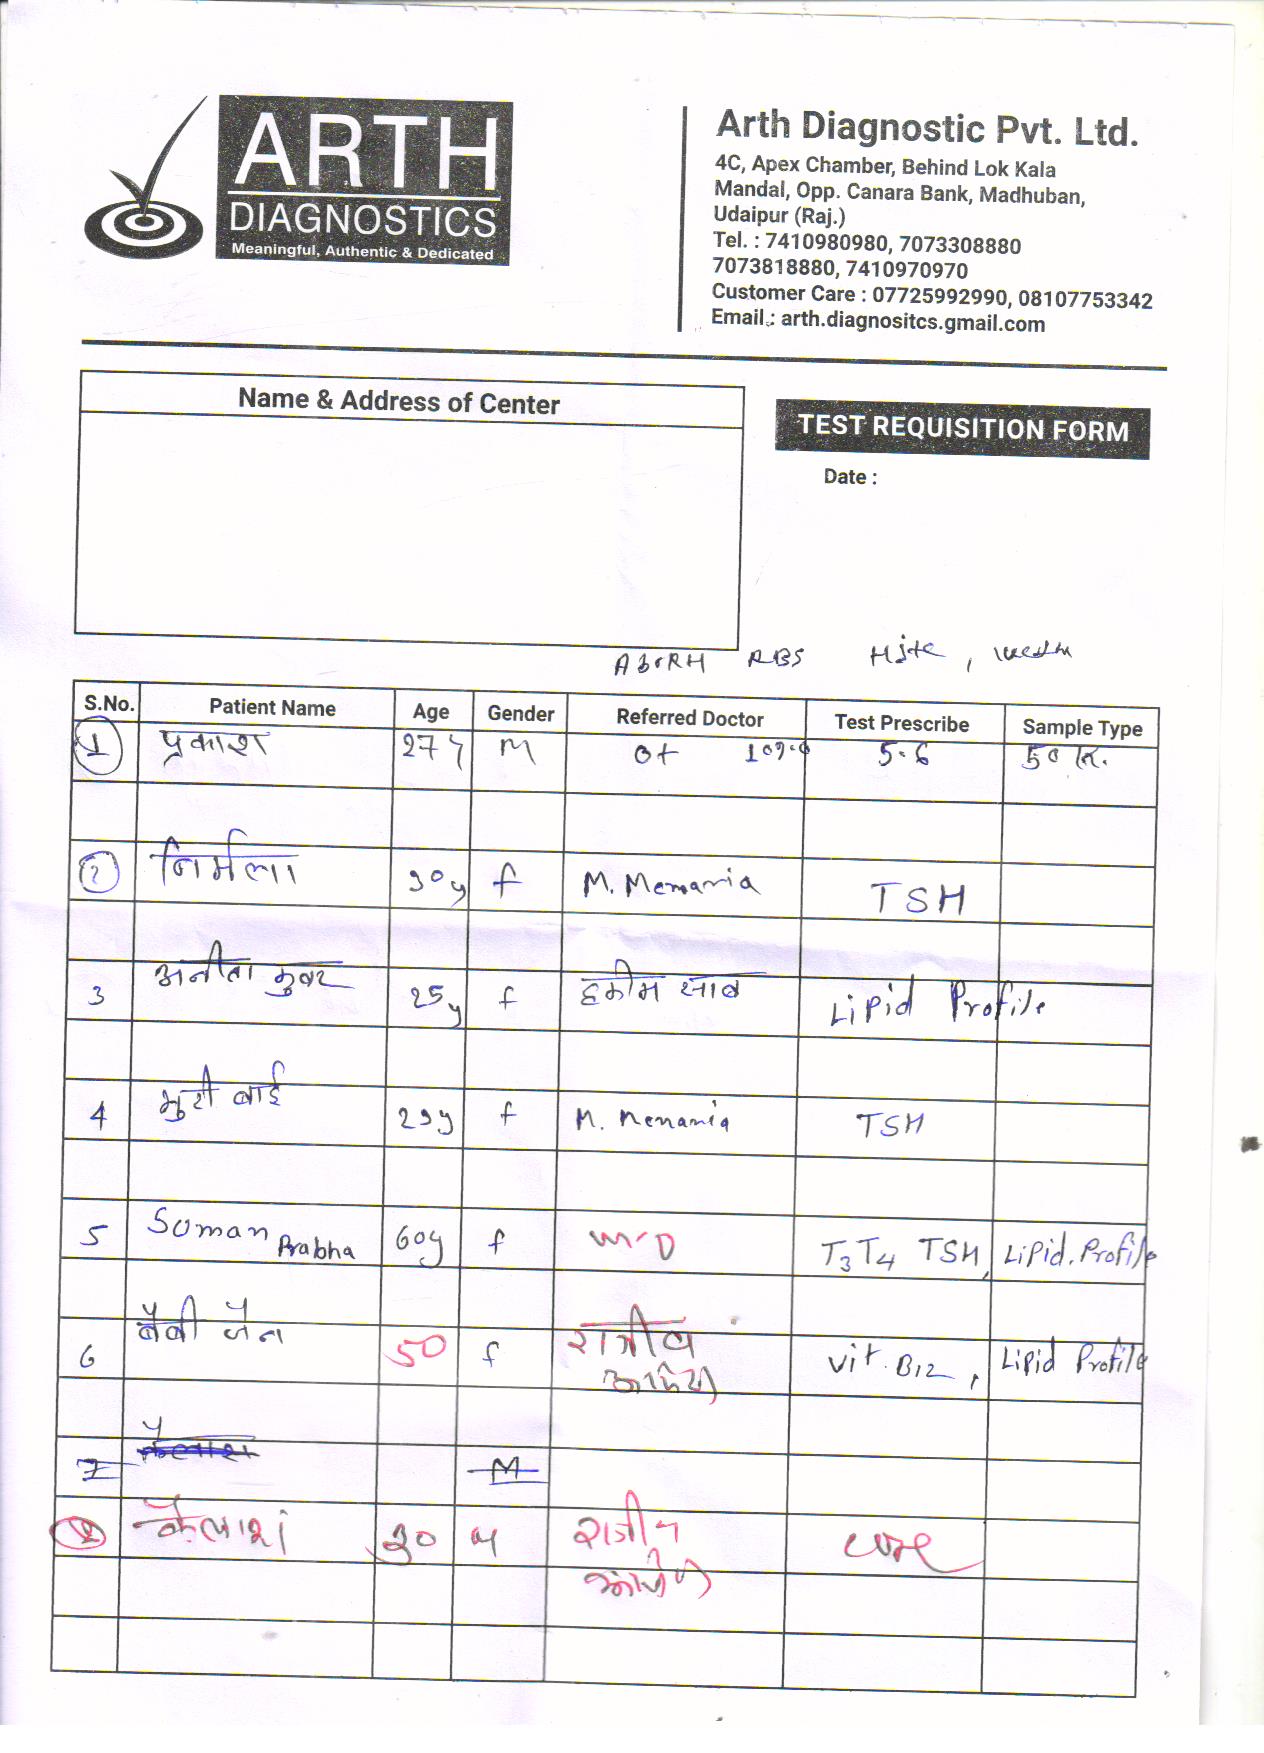 ARTH
DIAGNOSTICS
Meaningful, Authentic & Dedicated
Arth Diagnostic Pvt. Ltd.
4C, Apex Chamber, Behind Lok Kala
Mandal, Opp. Canara Bank, Madhuban,
Udaipur (Raj.)
Tel. : 7410980980, 7073308880
7073818880, 7410970970
Customer Care : 07725992990, 08107753342
Email.: arth.diagnositcs.gmail.com
Name & Address of Center
TEST REQUISITION FORM
Date :
RBS
S.No. Patient Name Age Gender Referred Doctor Test Prescribe Sample Type
1 प्रकाश 27y M 5.6
2 निर्मला 30y f M. Menaria TSH
3 अनीता कुवर 25y f हकीम साब Lipid Profile
4 बाई 29y f M. Menaria TSH
5 Suman Prabha 60y f T3 T4 TSH, Lipid. Profile
6 बेबी जैन 50 f राजीव Vit. B12, Lipid Profile
7 M
कैलाश 30 राजीव